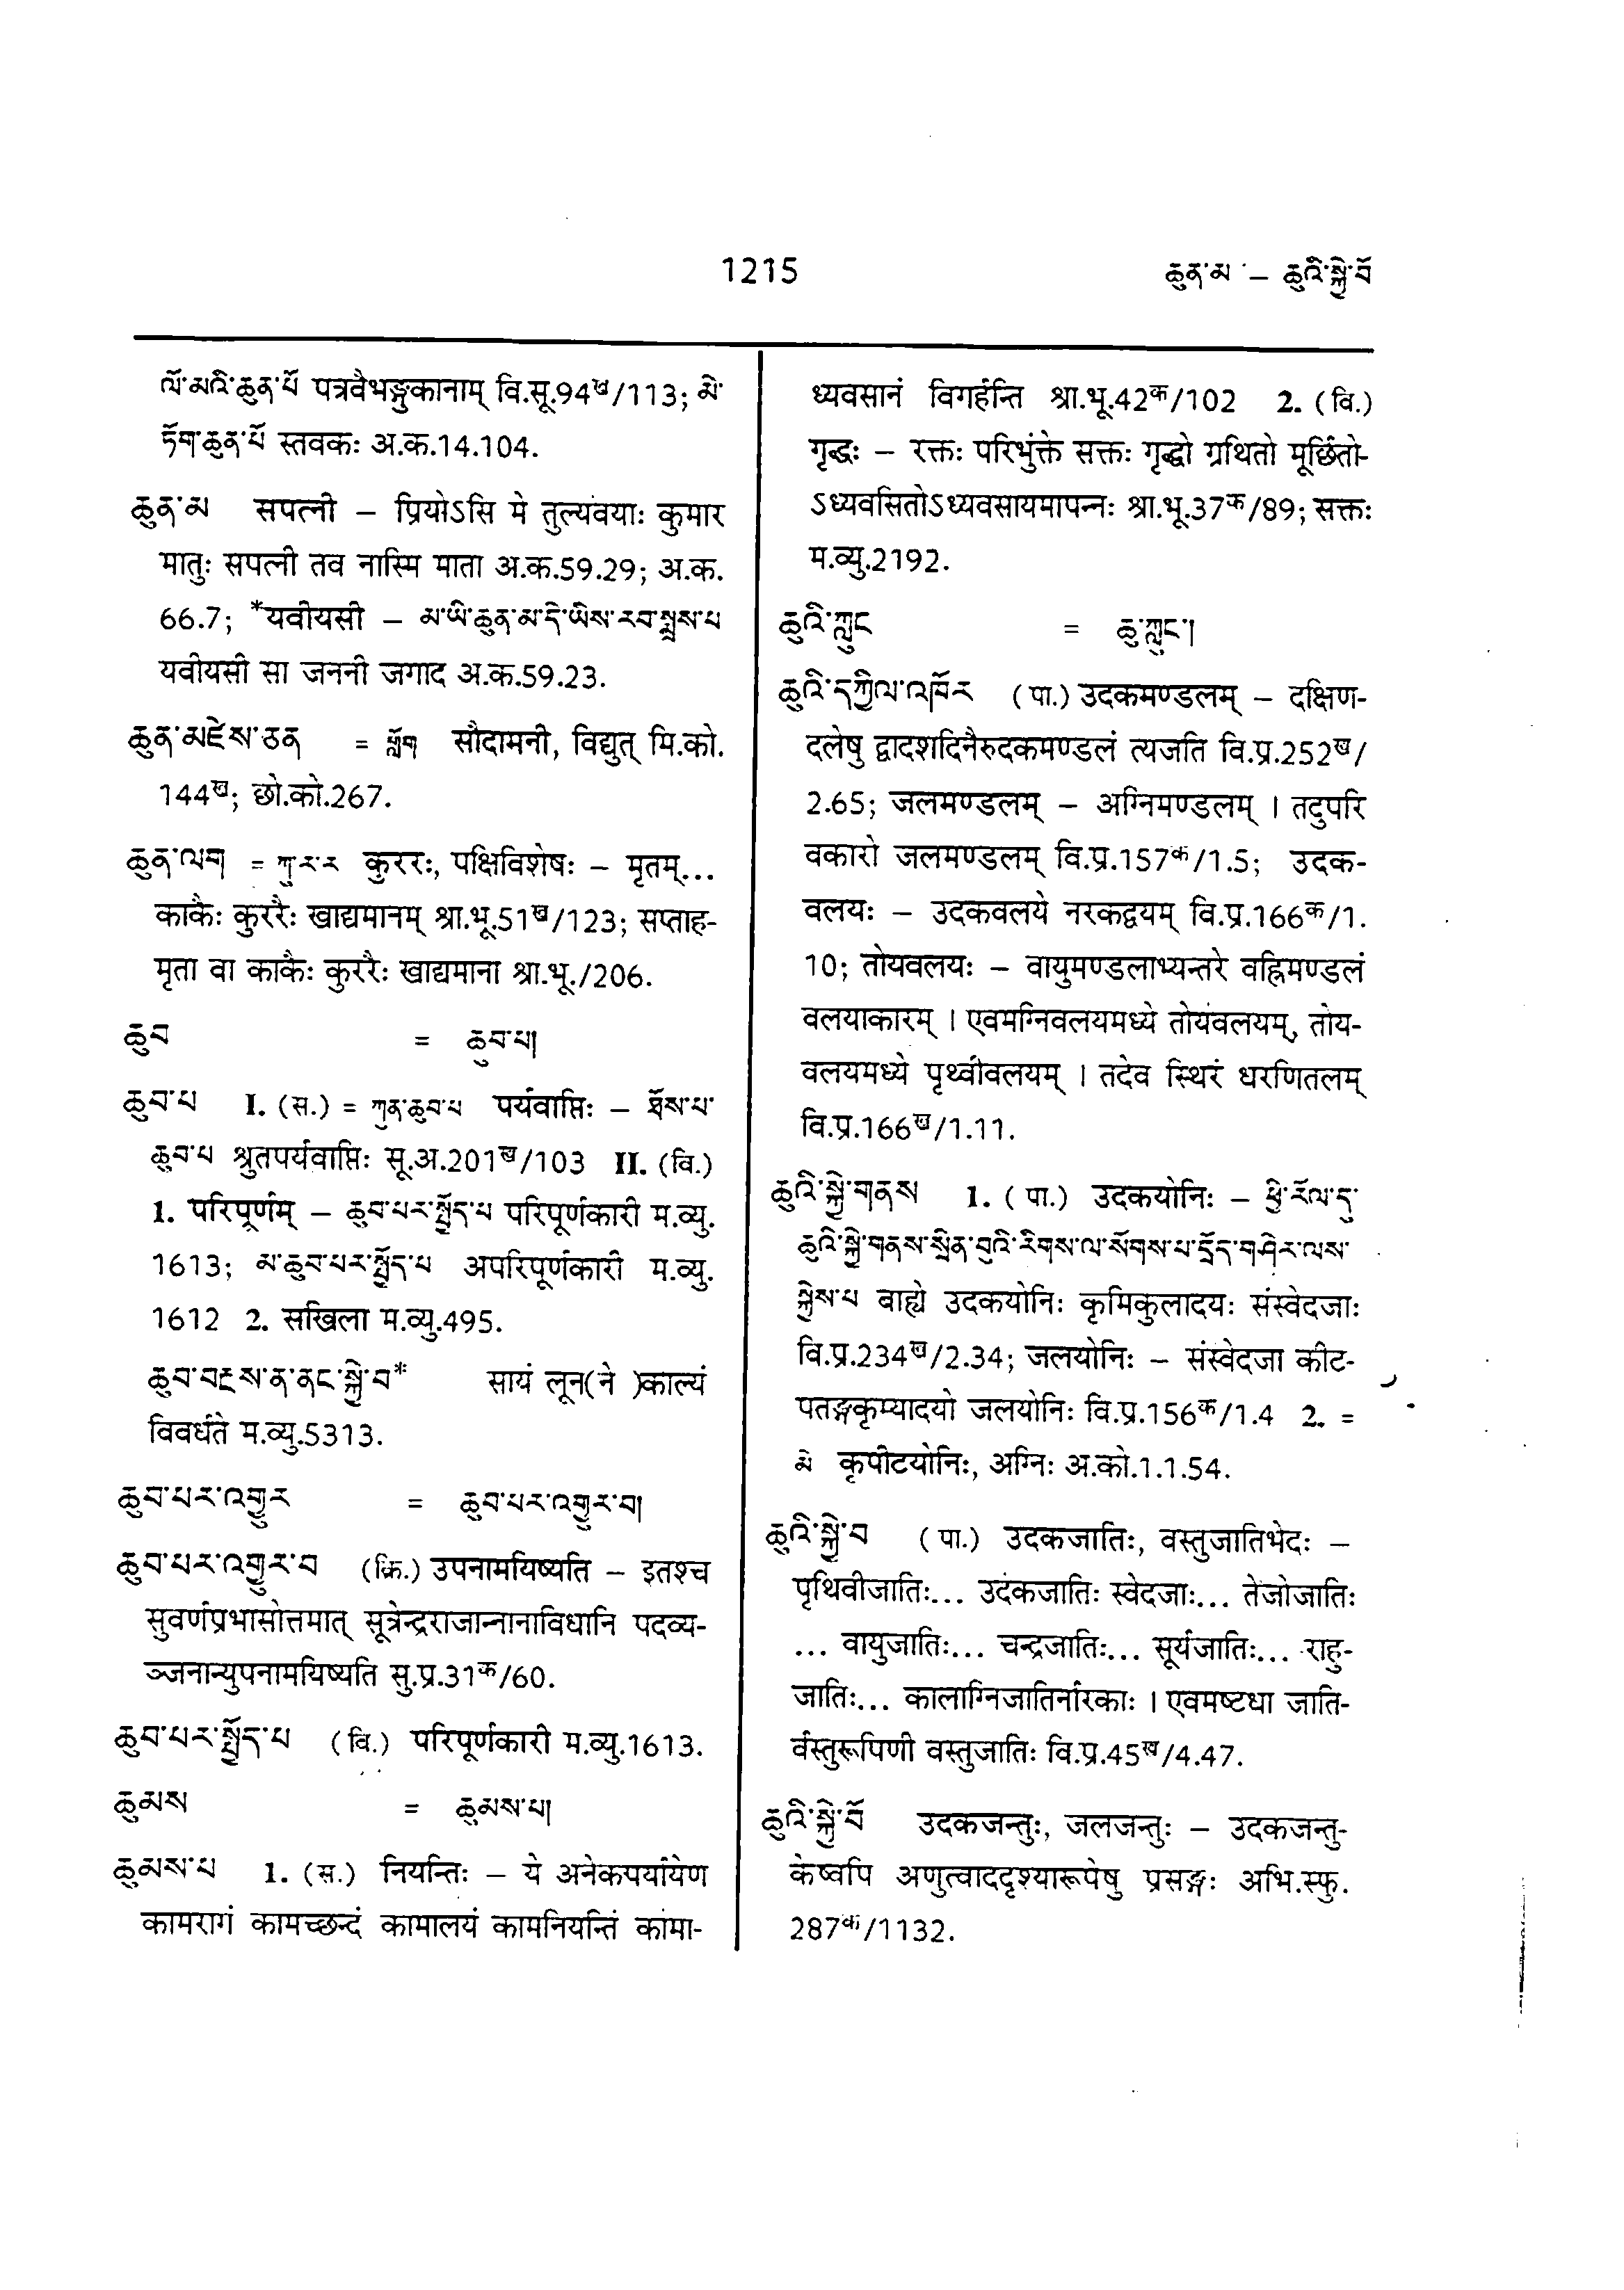 1215
ཆུན་མ – ཆུའི་སྐྱེ་བོ
ལོ་མའི་ཆུན་པོ པत्रवैभङ्गुकानाम् वि.सू.94ख/113; མེ་
ཏོག་ཆུན་པོ स्तवकः अ.क.14.104.
ཆུན་མ सपत्नी – प्रियोऽसि मे तुल्यवयाः कुमार
मातुः सपत्नी तव नास्मि माता अ.क.59.29; अ.क.
66.7; *यवीयसी – མ་ཡི་ཆུན་མ་དེ་ཡིས་རབ་སྨྲས་པ
यवीयसी सा जननी जगाद अ.क.59.23.
ཆུན་མཛེས་ཅན = གློག सौदामनी, विद्युत् मि.को.
144ख; छो.को.267.
ཆུན་ལག = ཀུ་ར་ར कुररः, पक्षिविशेषः – मृतम्...
काकैः कुररैः खाद्यमानम् श्रा.भू.51ख/123; सप्ताह-
मृता वा काकैः कुररैः खाद्यमाना श्रा.भू./206.
ཆུབ = ཆུབ་པ།
ཆུབ་པ I. (स.) = ཀུན་ཆུབ་པ पर्यवाप्तिः – ཐོས་པ་
ཆུབ་པ श्रुतपर्यवाप्तिः सू.अ.201ख/103 II. (वि.)
1. परिपूर्णम् – ཆུབ་པར་སྤྱོད་པ परिपूर्णकारी म.व्यु.
1613; མ་ཆུབ་པར་སྤྱོད་པ अपरिपूर्णकारी म.व्यु.
1612 2. सखिला म.व्यु.495.
ཆུབ་བརྔས་ན་ནང་སྐྱེ་བ* सायं लून(ने )काल्यं
विवर्धते म.व्यु.5313.
ཆུབ་པར་འགྱུར = ཆུབ་པར་འགྱུར་བ།
ཆུབ་པར་འགྱུར་བ (क्रि.) उपनामयिष्यति – इतश्च
सुवर्णप्रभासोत्तमात् सूत्रेन्द्रराजान्नानाविधानि पदव्य-
ञ्जनान्युपनामयिष्यति सु.प्र.31क/60.
ཆུབ་པར་སྤྱོད་པ (वि.) परिपूर्णकारी म.व्यु.1613.
ཆུམས = ཆུམས་པ།
ཆུམས་པ 1. (स.) नियन्तिः – ये अनेकपर्यायेण
कामरागं कामच्छन्दं कामालयं कामनियन्तिं कामा-
ध्यवसानं विगर्हन्ति श्रा.भू.42क/102 2. (वि.)
गृद्धः – रक्तः परिभुंक्ते सक्तः गृद्धो ग्रथितो मूर्छितो-
ऽध्यवसितोऽध्यवसायमापन्नः श्रा.भू.37क/89; सक्तः
म.व्यु.2192.
ཆུའི་ཀླུང = ཆུ་ཀླུང་།
ཆུའི་དཀྱིལ་འཁོར (पा.) उदकमण्डलम् – दक्षिण-
दलेषु द्वादशदिनैरुदकमण्डलं त्यजति वि.प्र.252ख/
2.65; जलमण्डलम् – अग्निमण्डलम् । तदुपरि
वकारो जलमण्डलम् वि.प्र.157क/1.5; उदक-
वलयः – उदकवलये नरकद्वयम् वि.प्र.166क/1.
10; तोयवलयः – वायुमण्डलाभ्यन्तरे वह्निमण्डलं
वलयाकारम् । एवमग्निवलयमध्ये तोयवलयम्, तोय-
वलयमध्ये पृथ्वीवलयम् । तदेव स्थिरं धरणितलम्
वि.प्र.166ख/1.11.
ཆུའི་སྐྱེ་གནས 1. (पा.) उदकयोनिः – ཕྱི་རོལ་དུ་
ཆུའི་སྐྱེ་གནས་སྲིན་བུའི་རིགས་ལ་སོགས་པ་དྲོད་གཤེར་ལས་
སྐྱེས་པ बाह्ये उदकयोनिः कृमिकुलादयः संस्वेदजाः
वि.प्र.234ख/2.34; जलयोनिः – संस्वेदजा कीट-
पतङ्गकृम्यादयो जलयोनिः वि.प्र.156क/1.4 2. =
མེ कृपीटयोनिः, अग्निः अ.को.1.1.54.
ཆུའི་སྐྱེ་བ (पा.) उदकजातिः, वस्तुजातिभेदः –
पृथिवीजातिः... उदकजातिः स्वेदजाः... तेजोजातिः
... वायुजातिः... चन्द्रजातिः... सूर्यजातिः... राहु-
जातिः... कालाग्निजातिर्नारकाः । एवमष्टधा जाति-
र्वस्तुरूपिणी वस्तुजातिः वि.प्र.45ख/4.47.
ཆུའི་སྐྱེ་བོ उदकजन्तुः, जलजन्तुः – उदकजन्तु-
केष्वपि अणुत्वाददृश्यारूपेषु प्रसङ्गः अभि.स्फु.
287क/1132.